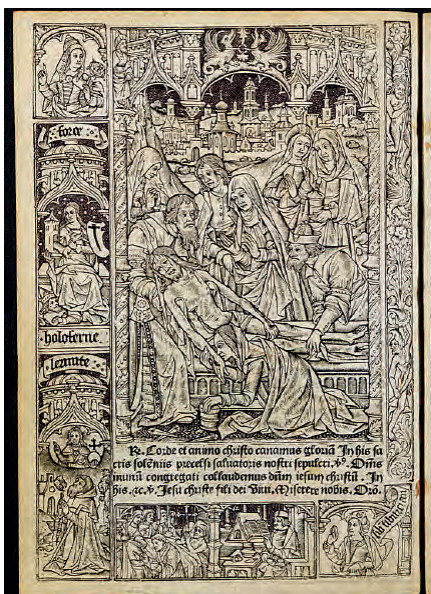 force
holoferne
lermite
R. Corde et animo christo canamus gloriā In his sa
cris solēniis precelsi saluatoris nostri sepulcri. v̊. Oīns
munū congregati collaudemus dūm iesum christū. In
his. ⁊c. v̊. Jesu christe fili dei viui. Miserere nobis. Orō.